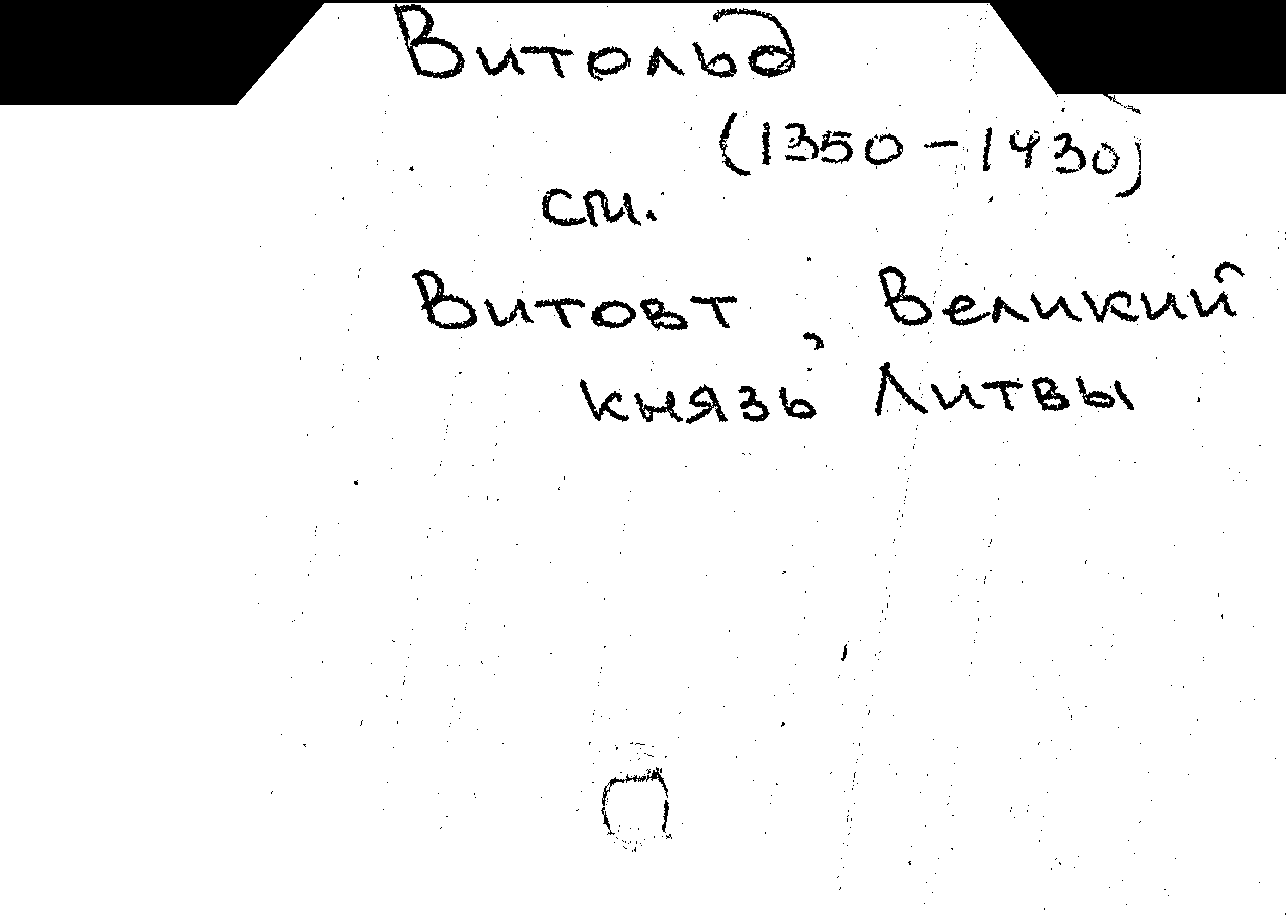 Витольд
(1350-1430)
см.
Витовт, Великий
князь Литвы